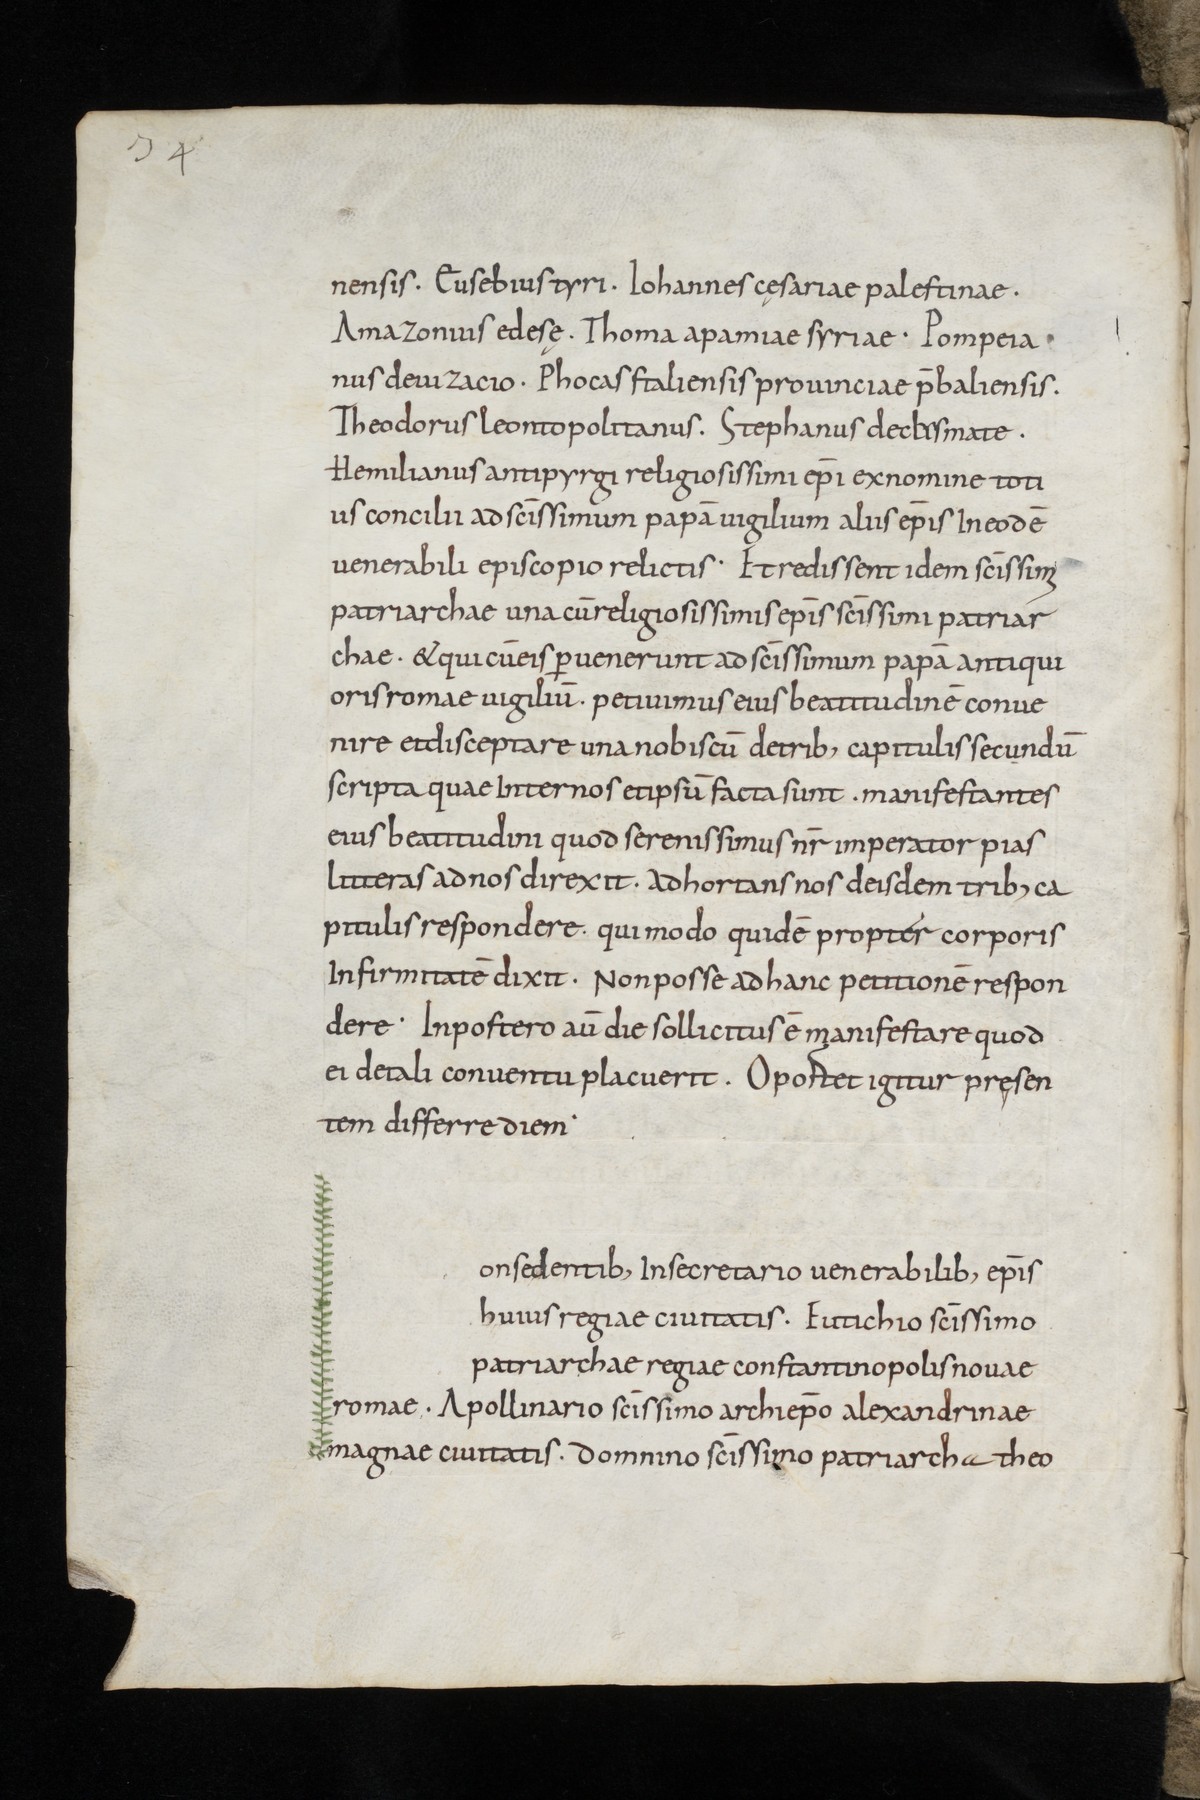 54
nensis. Eusebius tyri. Iohannes cęsariae palestinae.
Amazonius edesę. Thoma apamiae syriae. Pompeia
nus de uizacio. Phocas staliensis prouinciae p̄baliensis.
Theodorus leontopolitanus. Stephanus de clysmate.
Hemilianus antipyrgi religiosissimi ep̄i ex nomine toti
us concilii ad sc̄issimum papā uigilium aliis ep̄is In eodē
uenerabili episcopio relictis. Et redissent idem sc̄issimi
patriarchae una cū religiosissimis ep̄is sc̄issimi patriar
chae. & qui cū eis ꝑuenerunt ad sc̄issimum papā antiqui
oris romae uigiliū. petiuimus eius beatitudinē conue
nire et disceptare una nobiscū de trib; capitulis secundū
scripta quae Inter nos et ipsū facta sunt. manifestantes
eius beatitudini quod serenissimus nr̄ imperator pias
litteras ad nos direxit. Adhortans nos de isdem trib; ca
pitulis respondere. qui modo quidē propter corporis
Infirmitatē dixit. Non posse ad hanc petitionē respon
dere. In postero aū die sollicitus ē manifestare quod
ei de tali conuentu placuerit. Oportet igitur pręsen
tem differre diem.
onsedentib; In secretario uenerabilib; ep̄is
huius regiae ciuitatis. Eutichio sc̄issimo
patriarchae regiae constantinopolis nouae
romae. Apollinario sc̄issimo archiep̄o alexandrinae
magnae ciuitatis. Domnino sc̄issimo patriarchae theo